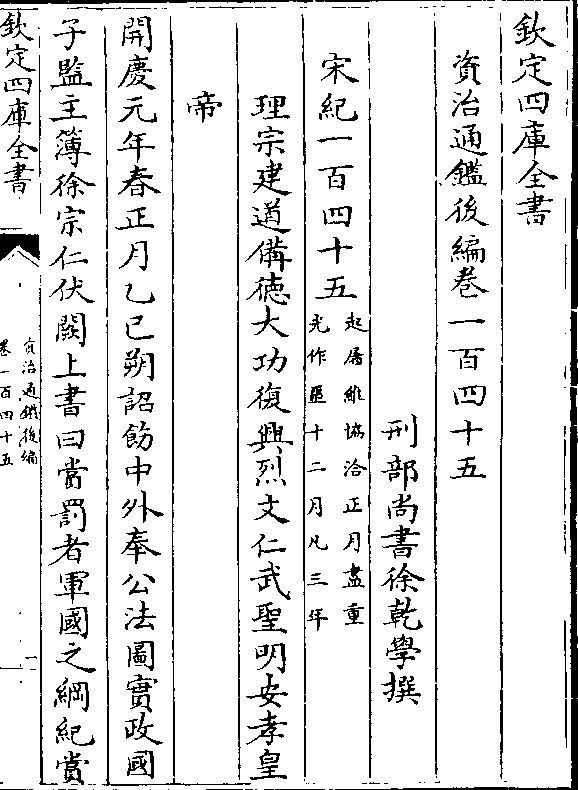 欽定四庫全書
資治通鑑後編卷一百四十五
刑部尚書徐乾學撰
宋紀一百四十五
起屠維協洽正月盡重
光作噩十二月凡三年
理宗建道備德大功復興烈文仁武聖明安孝皇
帝
開慶元年春正月乙巳朔詔飭中外奉公法圖實政國
子監主簿徐宗仁伏闕上書曰當罰者軍國之綱紀賞
欽定四庫全書
資治通鑑後編
卷一百四十五
一